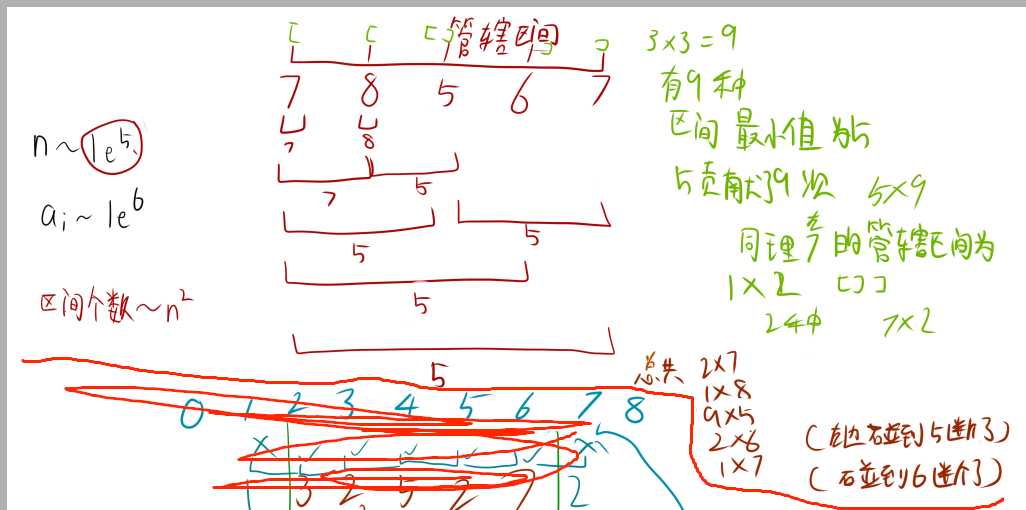 管辖区间
7 8 5 6 7
7 8
7 5
5 5
5
5
n~1e^5
a_i~1e^6
区间个数~n²
3×3=9
有9种
区间最小值为5
5贡献了9次 5×9
同理左7的管辖区间为
1×2
2种 7×2
总共 2×7
1×8
9×5
2×6 (左边碰到5断了)
1×7 (左碰到6断了)
0 1 2 3 4 5 6 7 8
× ✓ ✓ ✓ ✓ ✓ ×
3 2 5 2 7 2